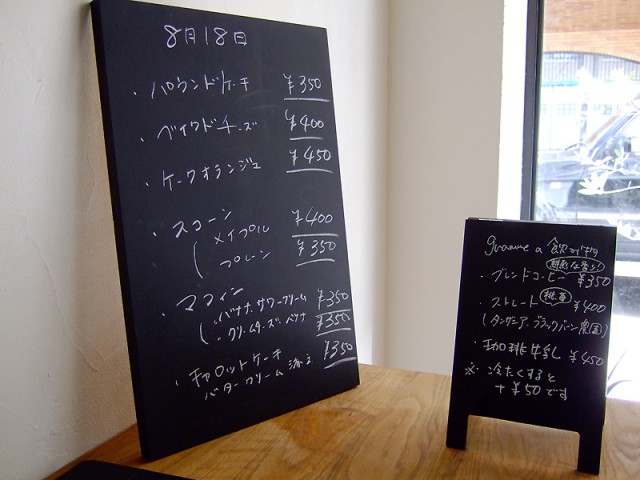 8月18日
・パウンドケーキ ¥350
・ベイクドチーズ ¥400
・ケークオランジュ ¥450
・スコーン
メイプル ¥400
プレーン ¥350
・マフィン
・バナナ、サワークリーム ¥350
・クリームチーズ・バナナ ¥350
・キャロットケーキ
バタークリーム添え ¥350
の飲み物
・ブレンドコーヒー ¥350
・ストレート ¥400
(タンザニア・ブラックバーン農園)
・珈琲牛乳 ¥450
※冷たくすると
+¥50です